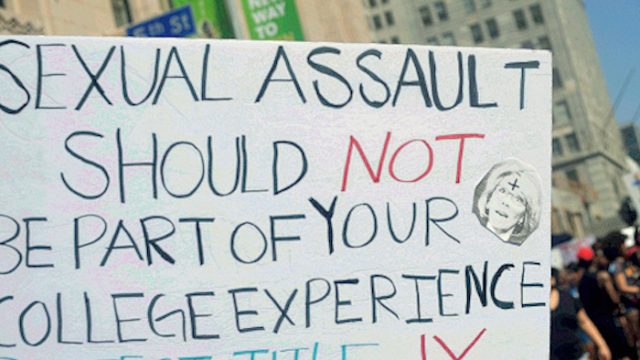 5th ST
WAY TO
SEXUAL ASSAULT
SHOULD NOT
BE PART OF YOUR
COLLEGE EXPERIENCE
PROTECT TITLE IX